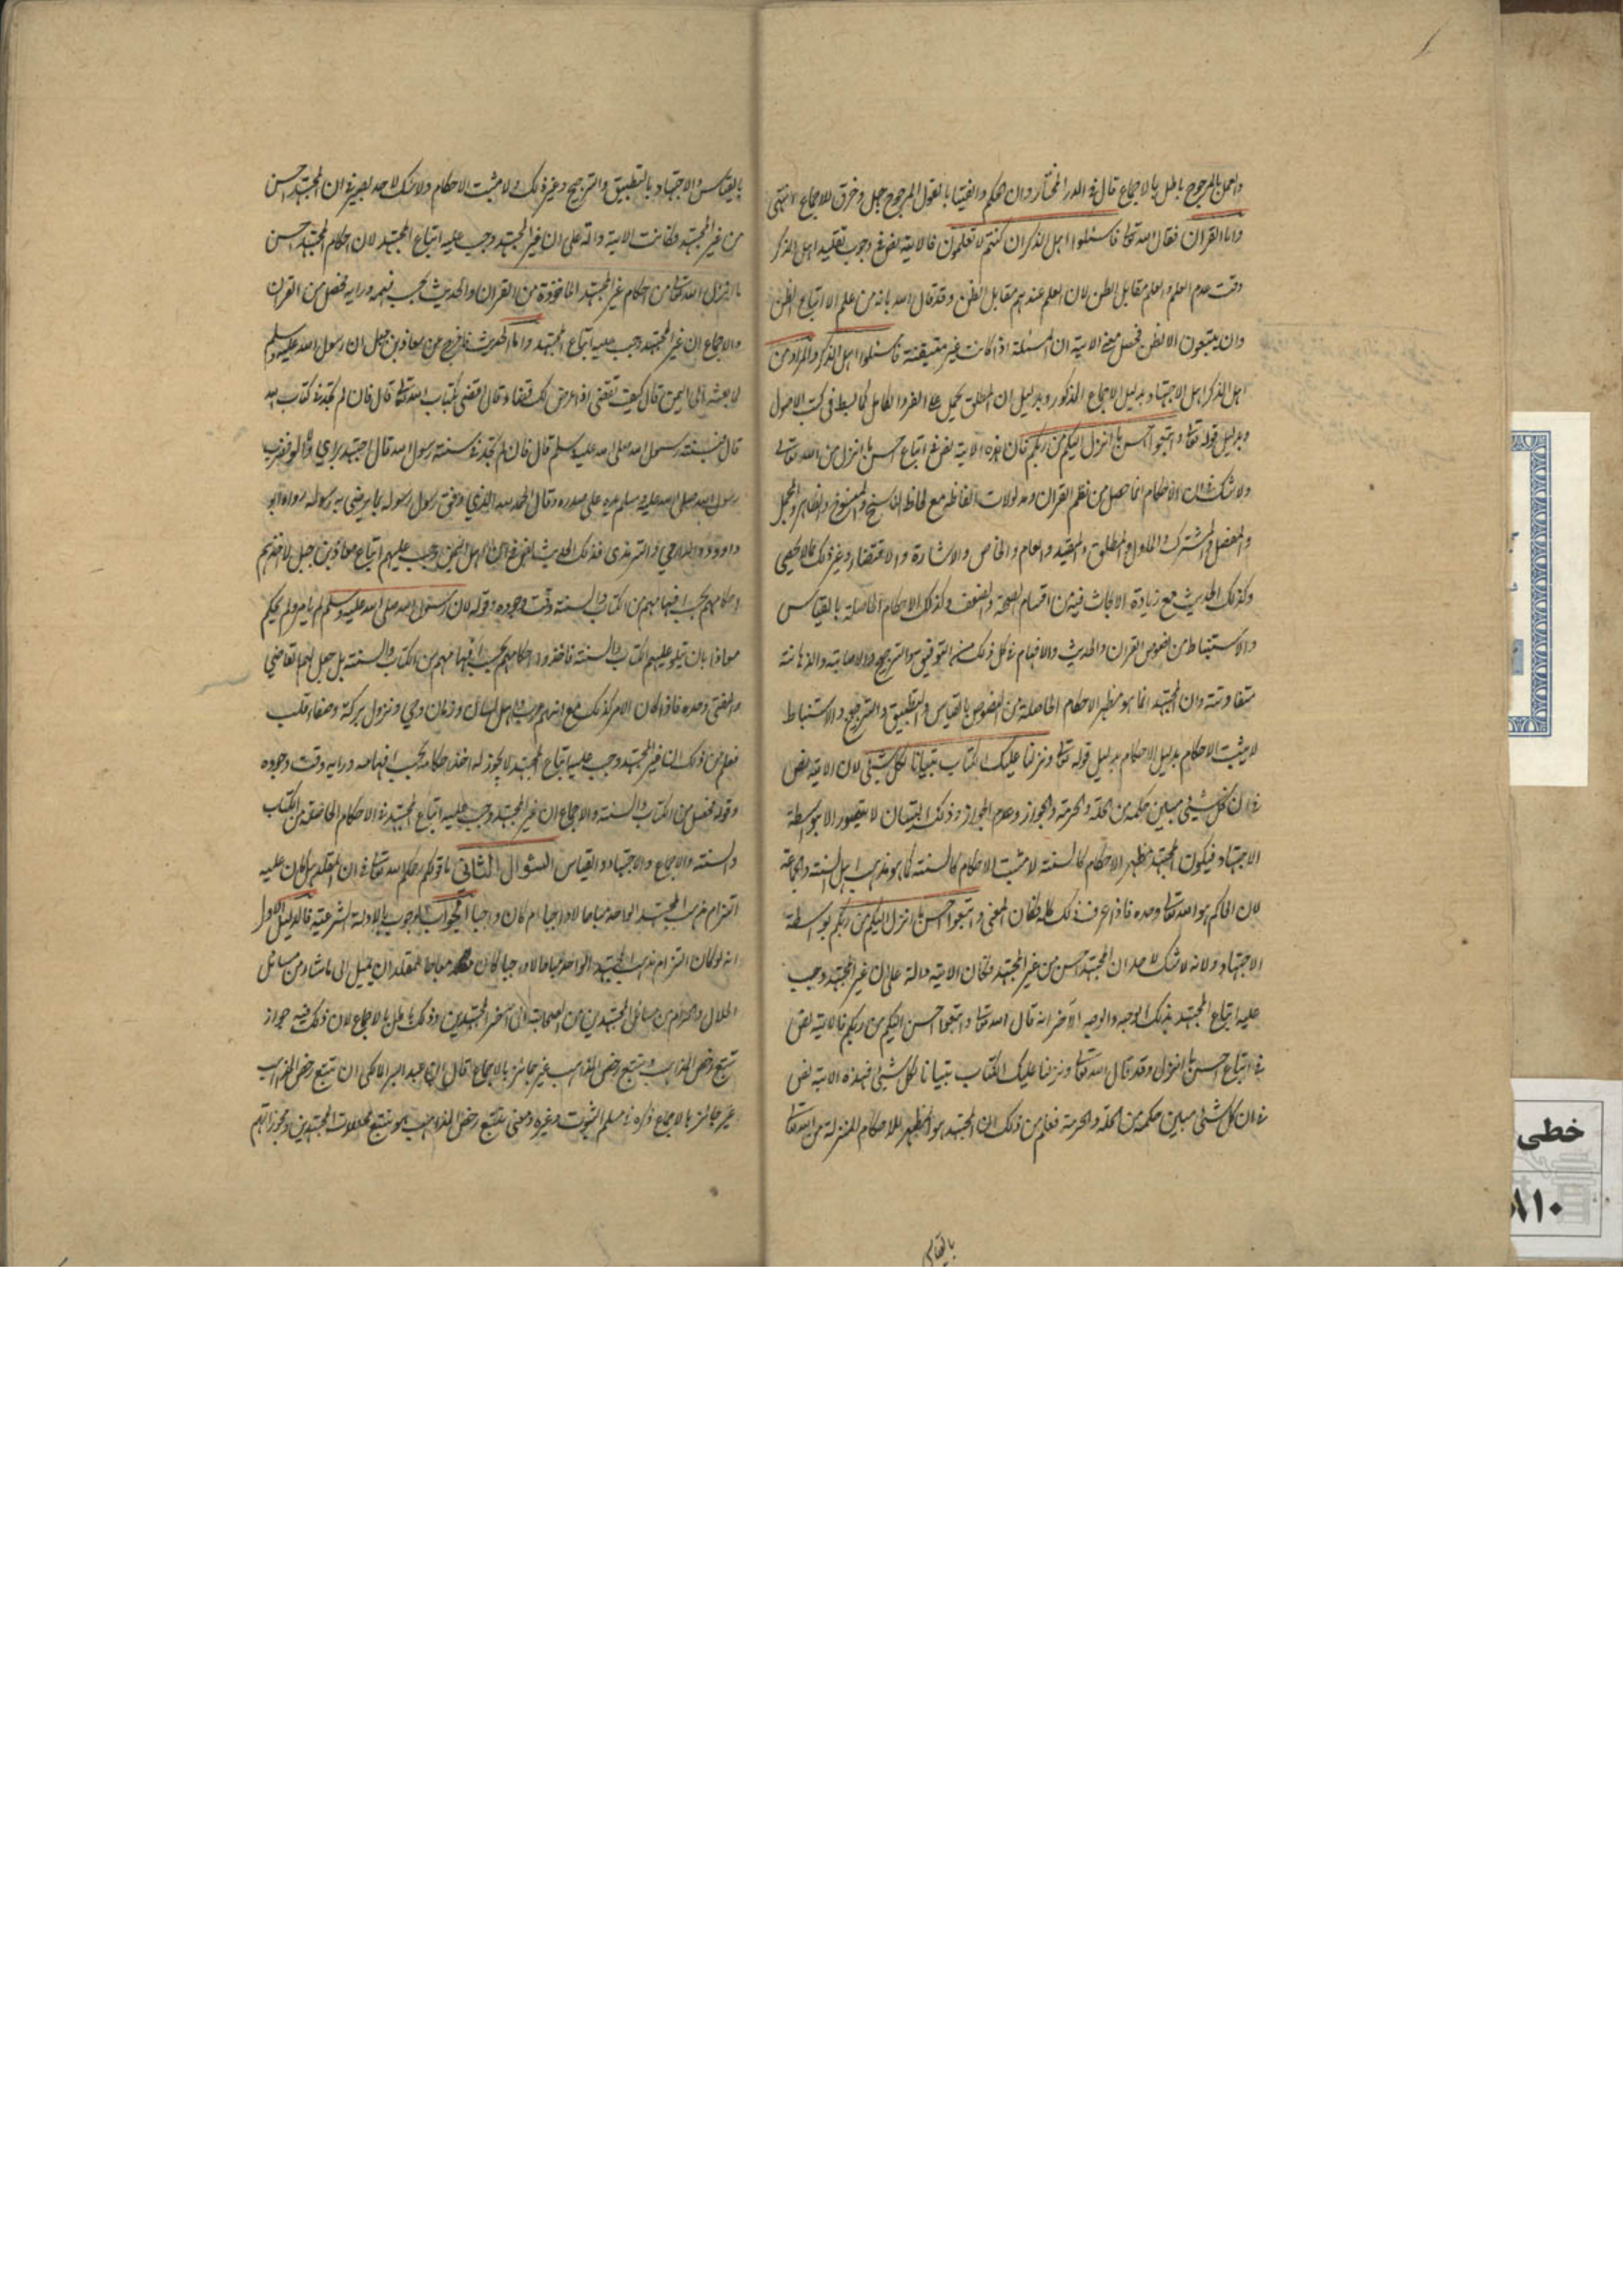 والعمل بالمرجوح باطل بالاجماع قال في الدر المختار وان الحكم والفتيا بالقول المرجوح جهل وخرق للاجماع انتهى
واما القران فقال الله تعالى فاسئلوا اهل الذكر ان كنتم لا تعلمون فالاية نص في وجوب تقليد اهل الذكر
وقت عدم العلم والعلم مقابل الظن لان العلم عندهم مقابل الظن وقد قال الله ما له من علم الا اتباع الظن
وان يتبعون الا الظن فحصل معنى الاية ان المسئلة اذا كانت غير متيقنة فاسئلوا اهل الذكر والمراد من
اهل الذكر اهل الاجتهاد بدليل الاجماع المذكور وبدليل ان المطلق يحمل على الفرد الكامل كما بسط في كتب الاصول
وبدليل قوله تعالى واتبعوا احسن ما انزل اليكم من ربكم فان هذه الاية نص في اتباع احسن ما انزل من الله تعالى
ولا شك ان الاحكام انما حصل من نظم القران ومدلولات الفاظه مع لحاظ الناسخ والمنسوخ والظاهر والمجمل
والمفصل والمشترك والماول والمطلق والمقيد والعام والخاص والاشارة والاقتضاء وغير ذلك كما لا يخفى
وكذلك الحديث مع زيادة الابحاث فيه من اقسام الصحة والضعف وكذلك الاحكام الحاصلة بالقياس
والاستنباط من نصوص القران والحديث والافهام في كل ذلك من التوفيق والترجيح والاصابة والذهانة
متفاوتة وان المجتهد انما هو مظهر الاحكام الحاصلة من النصوص بالقياس والتطبيق والترجيح والاستنباط
لا مثبت الاحكام بدليل الاحكام بدليل قوله تعالى ونزلنا عليك الكتاب تبيانا لكل شيئ لان الاية نص
في ان كل شيئ مبين حكمه من الحلة والحرمة والجواز وعدم الجواز وذلك التبيان لا يتصور الا بوسطة
الاجتهاد فيكون المجتهد مظهر الاحكام كالسنة لا مثبت الاحكام كالسنة كما هو مذهب اهل السنة والجماعة
لان الحاكم هو الله تعالى وحده فاذا عرفت ذلك كله فكان المعنى واتبعوا احسن ما انزل اليكم من ربكم بوسطة
الاجتهاد ولانه لا شك لاحد ان المجتهد احسن من غير المجتهد فكان الاية دالة على ان غير المجتهد وجب
عليه اتباع المجتهد بذلك الوجه والوجه الآخر انه قال الله تعالى واتبعوا احسن اليكم من ربكم فالاية نص
في اتباع احسن ما انزل وقد قال الله تعالى ونزلنا عليك الكتاب تبيانا لكل شيئ فهذه الاية نص
في ان كل شيئ مبين حكمه من الحلة والحرمة فعلم من ذلك ان المجتهد هو المظهر للاحكام المنزلة من الله تعالى
بالقياس
بالقياس والاجتهاد بالتطبيق والترجيح وغير ذلك لا مثبت الاحكام ولا شك لاحد بصير في ان المجتهد احسن
من غير المجتهد وكانت الاية دالة على ان غير المجتهد وجب عليه اتباع المجتهد لان احكام المجتهد احسن
ما انزل الله تعالى من احكام غير المجتهد الماخوذة من القران والحديث بحسب فهمه ورايه فحصل من القران
والاجماع ان غير المجتهد وجب عليه اتباع المجتهد واما الحديث فاخرج عن معاذ بن جبل ان رسول الله صلى الله عليه وسلم
لما بعثه الى اليمن قال كيف تقضي اذا عرض لك قضاء قال اقضي بكتاب الله تعالى قال فان لم تجد في كتاب الله
قال فبسنة رسول الله صلى الله عليه وسلم قال فان لم تجد في سنة رسول الله قال اجتهد برايي ولا آلو فضرب
رسول الله صلى الله عليه وسلم يده على صدره وقال الحمد لله الذي وفق رسول رسوله بما يرضي به رسوله رواه ابو
داوود والدارمي والترمذي فذلك الحديث نص في ان اهل اليمن وجب عليهم اتباع معاذ بن جبل لا اخذهم
احكامهم بحسب افهامهم من الكتاب والسنة وقت وجوده وقوله لان رسول الله صلى الله عليه وسلم لم يامر ولم يحكم
معاذا بان يتلو عليهم الكتاب والسنة فاخذوا احكامهم بحسب افهامهم من الكتاب والسنة بل جعل لهما القاضي
والمفتي وحده فاذا كان الامر كذلك مع انهم عرب واهل لسان وزمان وحي ونزول بركة وصفاء قلب
فعلم من ذلك ان غير المجتهد وجب عليه اتباع المجتهد لا يجوز له اخذ احكامه بحسب افهامه ورايه وقت وجوده
وقوله فحصل من الكتاب والسنة والاجماع ان غير المجتهد وجب عليه اتباع المجتهد في الاحكام الحاصلة من الكتاب
والسنة والاجماع والاجتهاد والقياس السئوال الثاني ما قولكم رحمكم الله تعالى في ان المقلد هل كان عليه
التزام مذهب المجتهد الواحد مباحا لا واجبا ام كان واجبا الجواب الوجوب بالادلة الشرعية فالدليل الاول
انه لو كان التزام مذهب المجتهد الواحد مباحا لا واجبا لكان مباحا للمقلد ان يميل الى ما شاء من مسائل
الحلال والحرام من مسائل المجتهدين من الصحابة الى آخر المجتهدين وذلك باطل بالاجماع لان ذلك فيه جواز
تتبع رخص المذاهب وتتبع رخص المذاهب غير جائز بالاجماع قال ابن عبد البر المالكي ان تتبع رخص المذاهب
غير جائز بالاجماع ذكره في مسلم الثبوت وغيره ومعنى تتبع رخص المذاهب هو تتبع محللات المجتهدين ومجوزاتهم
خطي